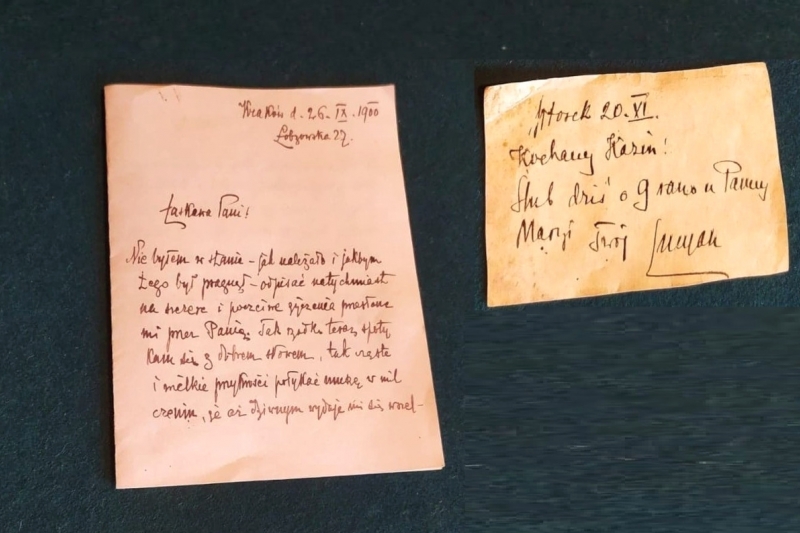 Kraków d. 26. IX. 1900
Łobzowska 27.
Łaskawa Pani!
Nie byłem w stanie - jak należało i jakbym
tego był pragnął - odpisać natychmiast
na szczere i poczciwe życzenia przesłane
mi przez Panią. Tak rzadko teraz spoty
kam się z dobrem słowem, tak częste
i wielkie przykrości połykać muszę w mil
czeniu, że aż dziwnym wydaje mi się wszel-
Wtorek 20. XI.
Kochany Kaziu!
Ślub dziś o 9 rano u Panny
Maryi Twój Lucyan